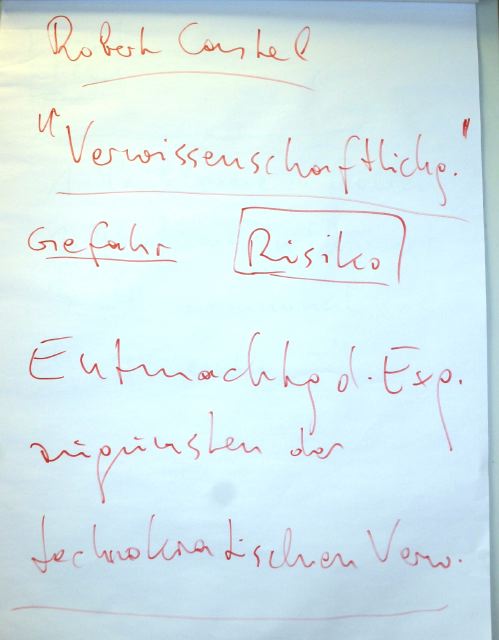 Robert Castel
"Verwissenschaftlichg."
Gefahr Risiko
Entmachtg d. Exp.
zugunsten der
technokratischen Verw.